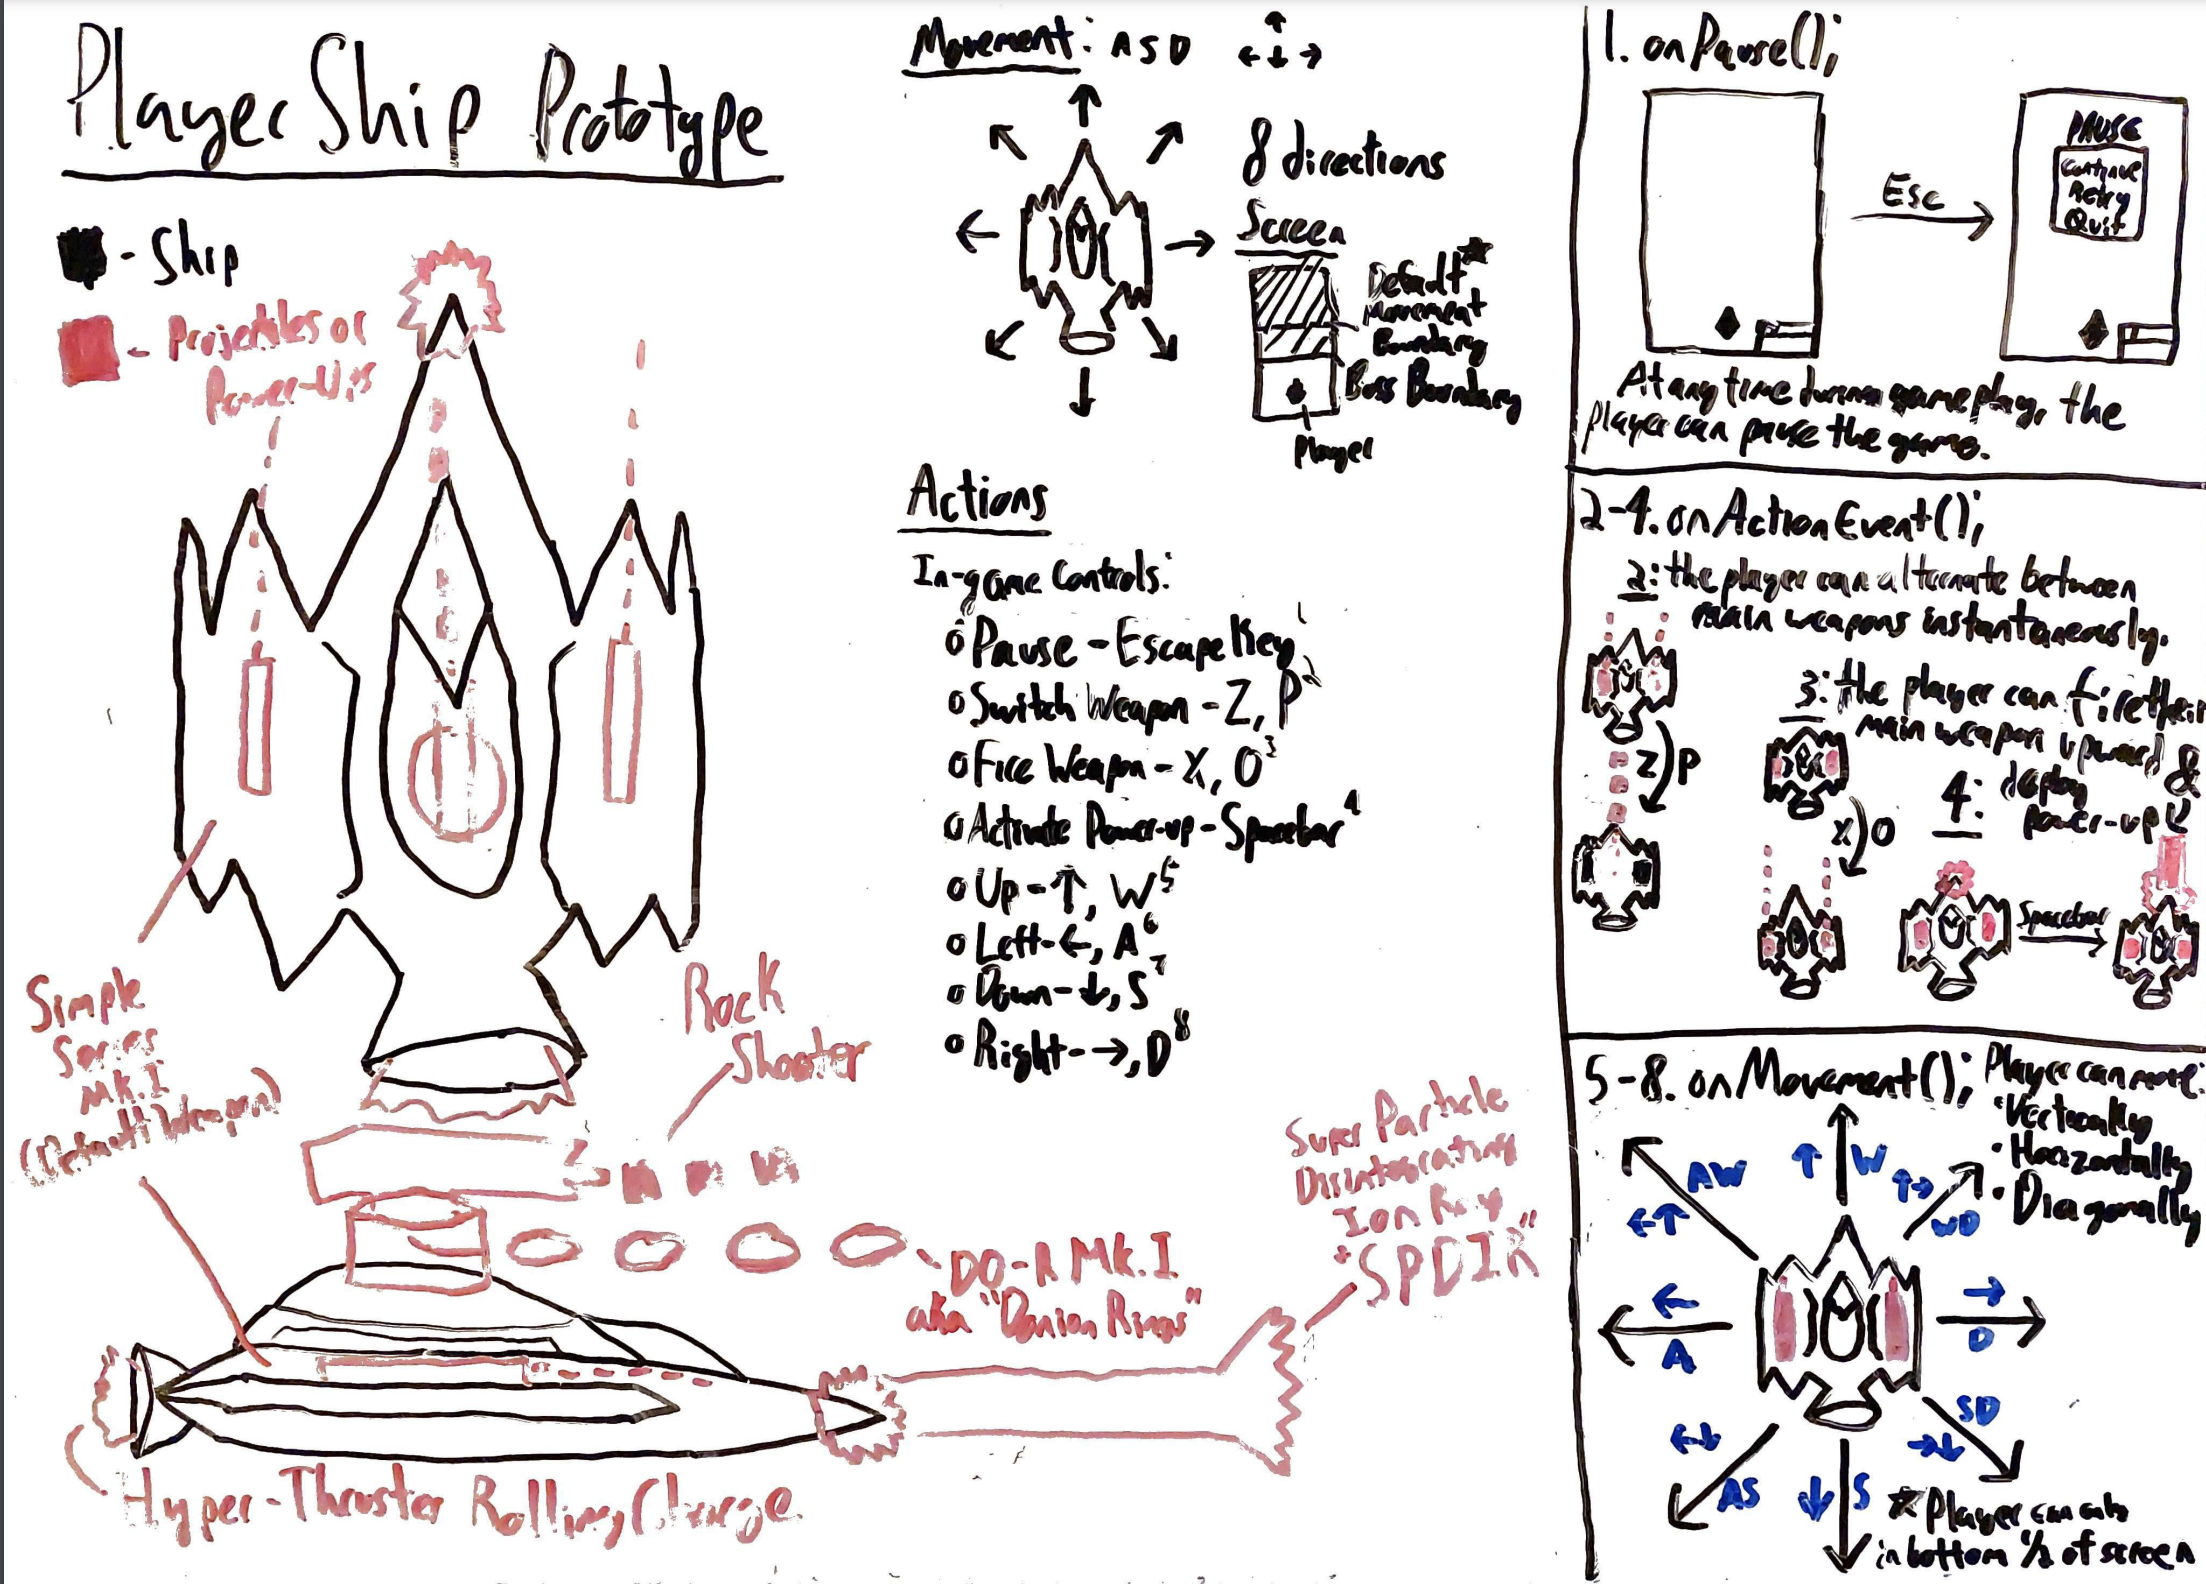 Player Ship Prototype
- Ship
- Projectiles or
Power-Ups
Simple
Series
MK.I
(Default Weapon)
Rock
Shooter
DO-R MK.I
aka "Donion Rings"
Super Particle
Disintegrating
Ion Ray
"SPDIR"
Hyper-Thruster Rolling Charge
Movement: ASD ↑
← ↓ →
8 directions
Screen
Default ★
Movement
Boundary
Boss Boundary
Player
Actions
In-game Controls:
o Pause - Escape Key 1
o Switch Weapon - Z, P 2
o Fire Weapon - X, O 3
o Activate Power-up - Spacebar 4
o Up - ↑, W 5
o Left - ←, A 6
o Down - ↓, S 7
o Right - →, D 8
1. onPause();
Esc
PAUSE
Continue
Retry
Quit
At any time during gameplay, the
player can pause the game.
2-4. onActionEvent();
2: the player can alternate between
main weapons instantaneously.
Z P
3: the player can fire their
main weapon upward &
X O
4: deploy
power-up
Spacebar
5-8. onMovement(); Player can move:
• Vertically
• Horizontally
• Diagonally
AW
←↑
↑ W
↑→
WD
←
A
→
D
←↓
AS
↓ S
SD
→↓
★ Player can only
in bottom 1/2 of screen